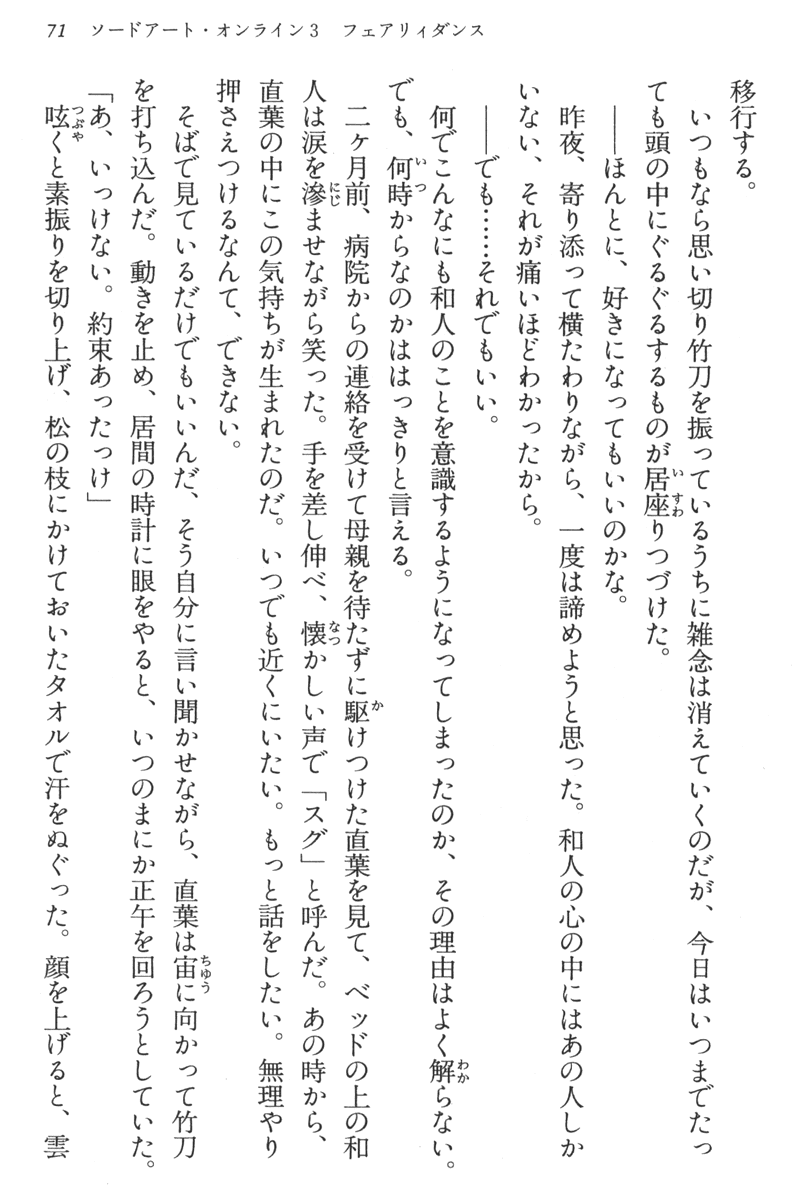 71 ソードアート・オンライン3 フェアリィダンス
移行する。
いつもなら思い切り竹刀を振っているうちに雑念は消えていくのだが、今日はいつまでたっ
ても頭の中にぐるぐるするものが居座りつづけた。
――ほんとに、好きになってもいいのかな。
昨夜、寄り添って横たわりながら、一度は諦めようと思った。和人の心の中にはあの人しか
いない、それが痛いほどわかったから。
――でも……それでもいい。
何でこんなにも和人のことを意識するようになってしまったのか、その理由はよく解らない。
でも、何時からなのかははっきりと言える。
二ヶ月前、病院からの連絡を受けて母親を待たずに駆けつけた直葉を見て、ベッドの上の和
人は涙を滲ませながら笑った。手を差し伸べ、懐かしい声で「スグ」と呼んだ。あの時から、
直葉の中にこの気持ちが生まれたのだ。いつでも近くにいたい。もっと話をしたい。無理やり
押さえつけるなんて、できない。
そばで見ているだけでもいいんだ、そう自分に言い聞かせながら、直葉は宙に向かって竹刀
を打ち込んだ。動きを止め、居間の時計に眼をやると、いつのまにか正午を回ろうとしていた。
「あ、いっけない。約束あったっけ」
呟くと素振りを切り上げ、松の枝にかけておいたタオルで汗をぬぐった。顔を上げると、雲